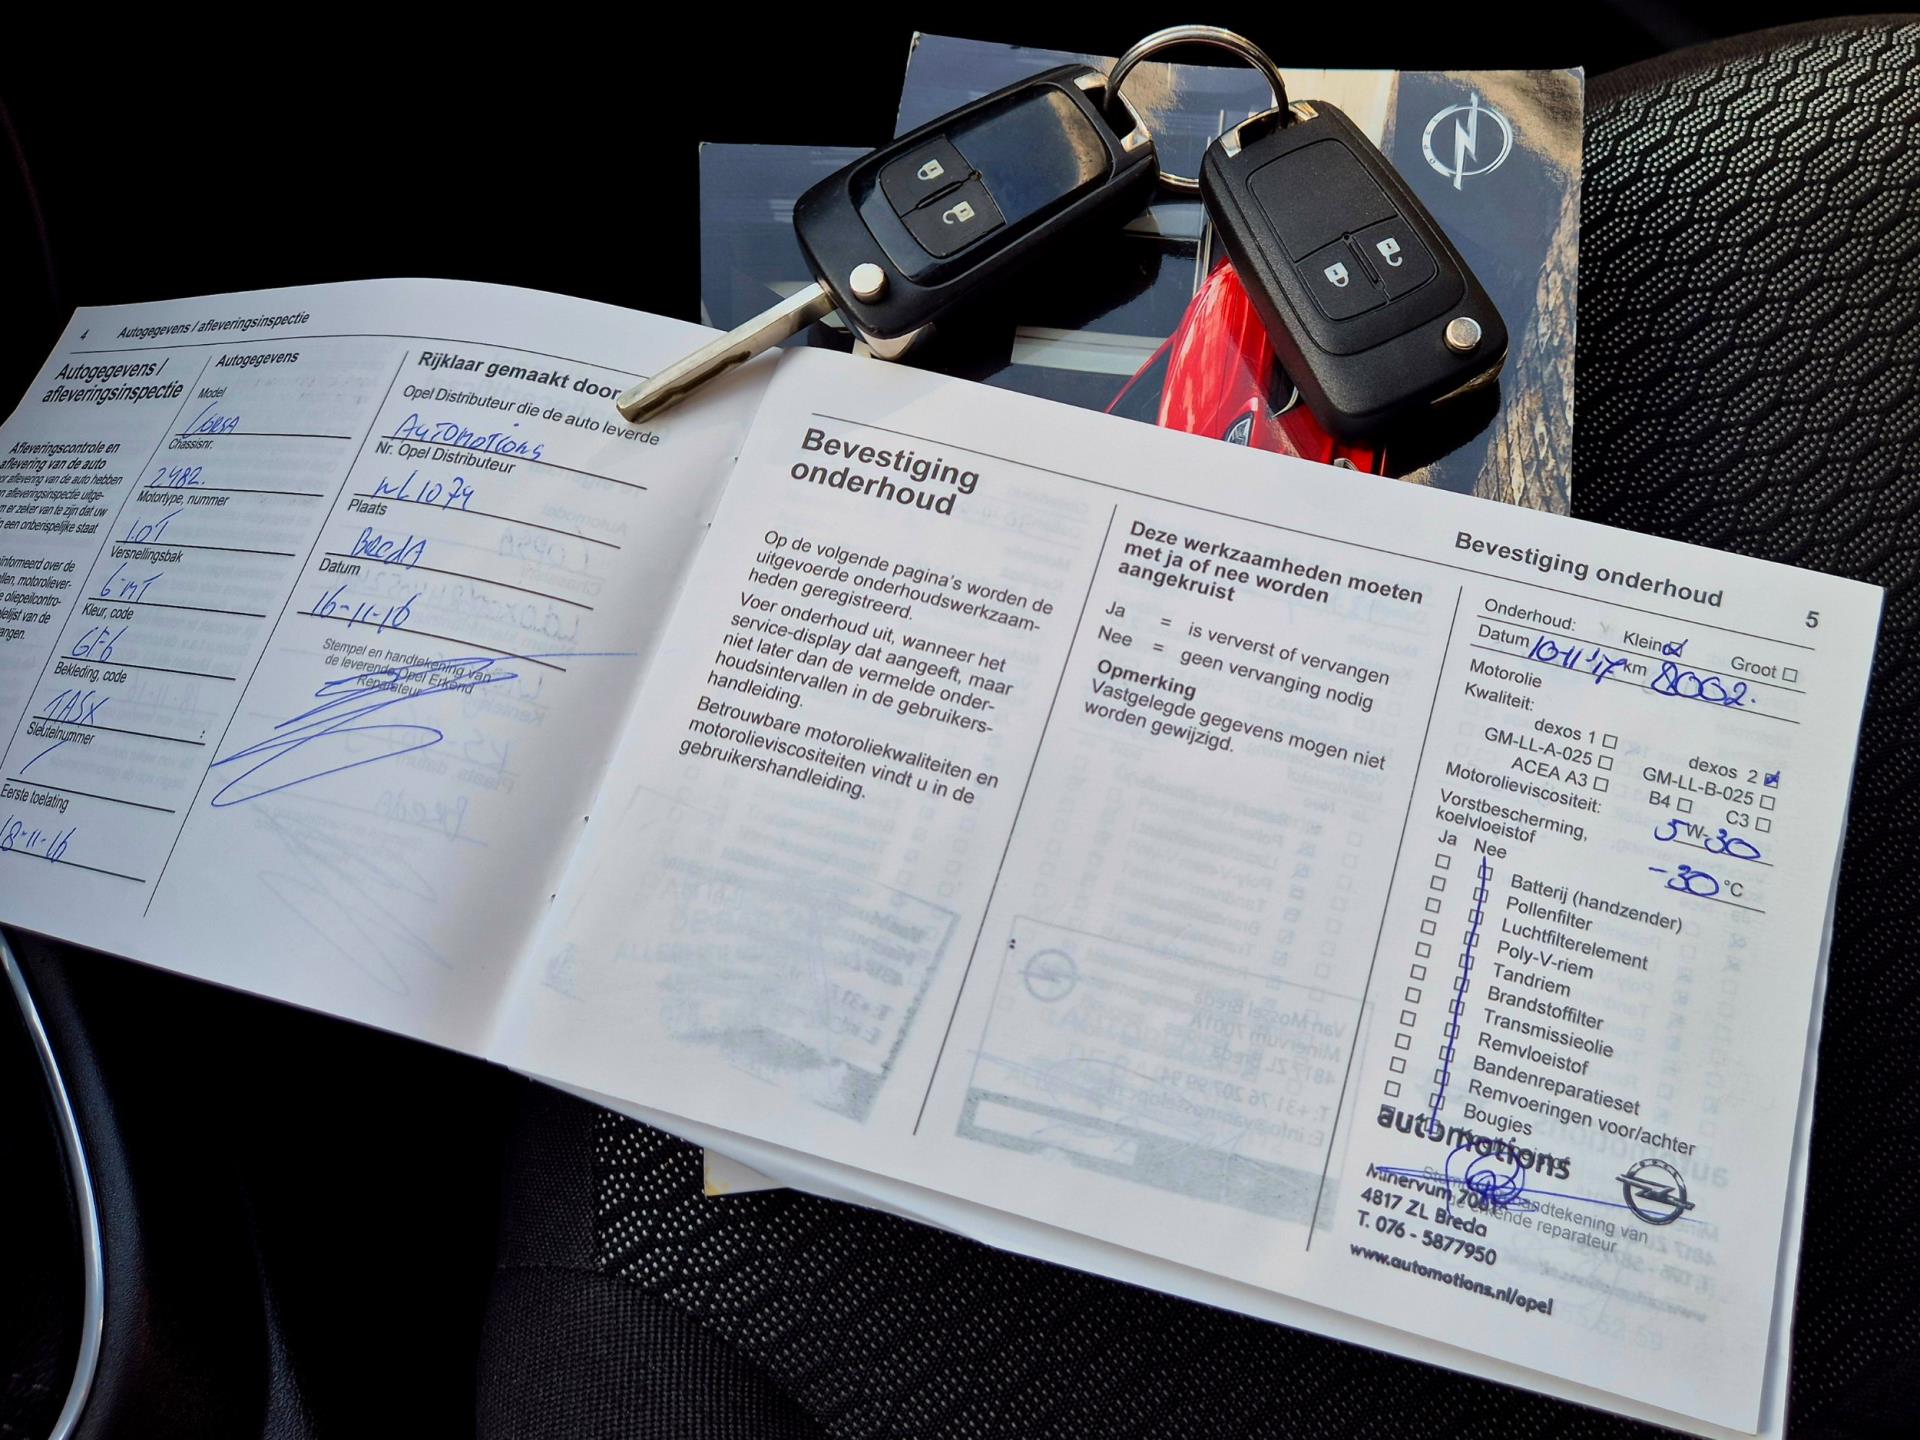 4 Autogegevens / afleveringsinspectie
Autogegevens /
afleveringsinspectie
Afleveringscontrole en
aflevering van de auto
aflevering van de auto hebben
afleveringsinspectie uitge-
om er zeker van te zijn dat uw
een onberispelijke staat
Autogegevens
Model
Corsa
Chassisnr.
2482.
Motortype, nummer
1.0T
Versnellingsbak
6-MT
Kleur, code
GF6
Bekleding, code
TASX
Sleutelnummer
/
Eerste toelating
18-11-16
Rijklaar gemaakt door
Opel Distributeur die de auto leverde
Automotions
Nr. Opel Distributeur
NL1074
Plaats
Breda
Datum
16-11-16
Stempel en handtekening van
de leverende Opel Erkend
Reparateur
Bevestiging
onderhoud
Op de volgende pagina's worden de
uitgevoerde onderhoudswerkzaam-
heden geregistreerd.
Voer onderhoud uit, wanneer het
service-display dat aangeeft, maar
niet later dan de vermelde onder-
houdsintervallen in de gebruikers-
handleiding.
Betrouwbare motoroliekwaliteiten en
motorolieviscositeiten vindt u in de
gebruikershandleiding.
Deze werkzaamheden moeten
met ja of nee worden
aangekruist
Ja = is ververst of vervangen
Nee = geen vervanging nodig
Opmerking
Vastgelegde gegevens mogen niet
worden gewijzigd.
Bevestiging onderhoud 5
Onderhoud: Klein Groot
Datum 10-11-'17 km 8002.
Motorolie
Kwaliteit:
dexos 1 dexos 2
GM-LL-A-025 GM-LL-B-025
ACEA A3 B4 C3
Motorolieviscositeit: 5W-30
Vorstbescherming,
koelvloeistof -30 °C
Ja Nee
Batterij (handzender)
Pollenfilter
Luchtfilterelement
Poly-V-riem
Tandriem
Brandstoffilter
Transmissieolie
Remvloeistof
Bandenreparatieset
Remvoeringen voor/achter
Bougies
automotions
Minervum 7001
4817 ZL Breda
T. 076 - 5877950
www.automotions.nl/opel
handtekening van
erkende reparateur
OPEL